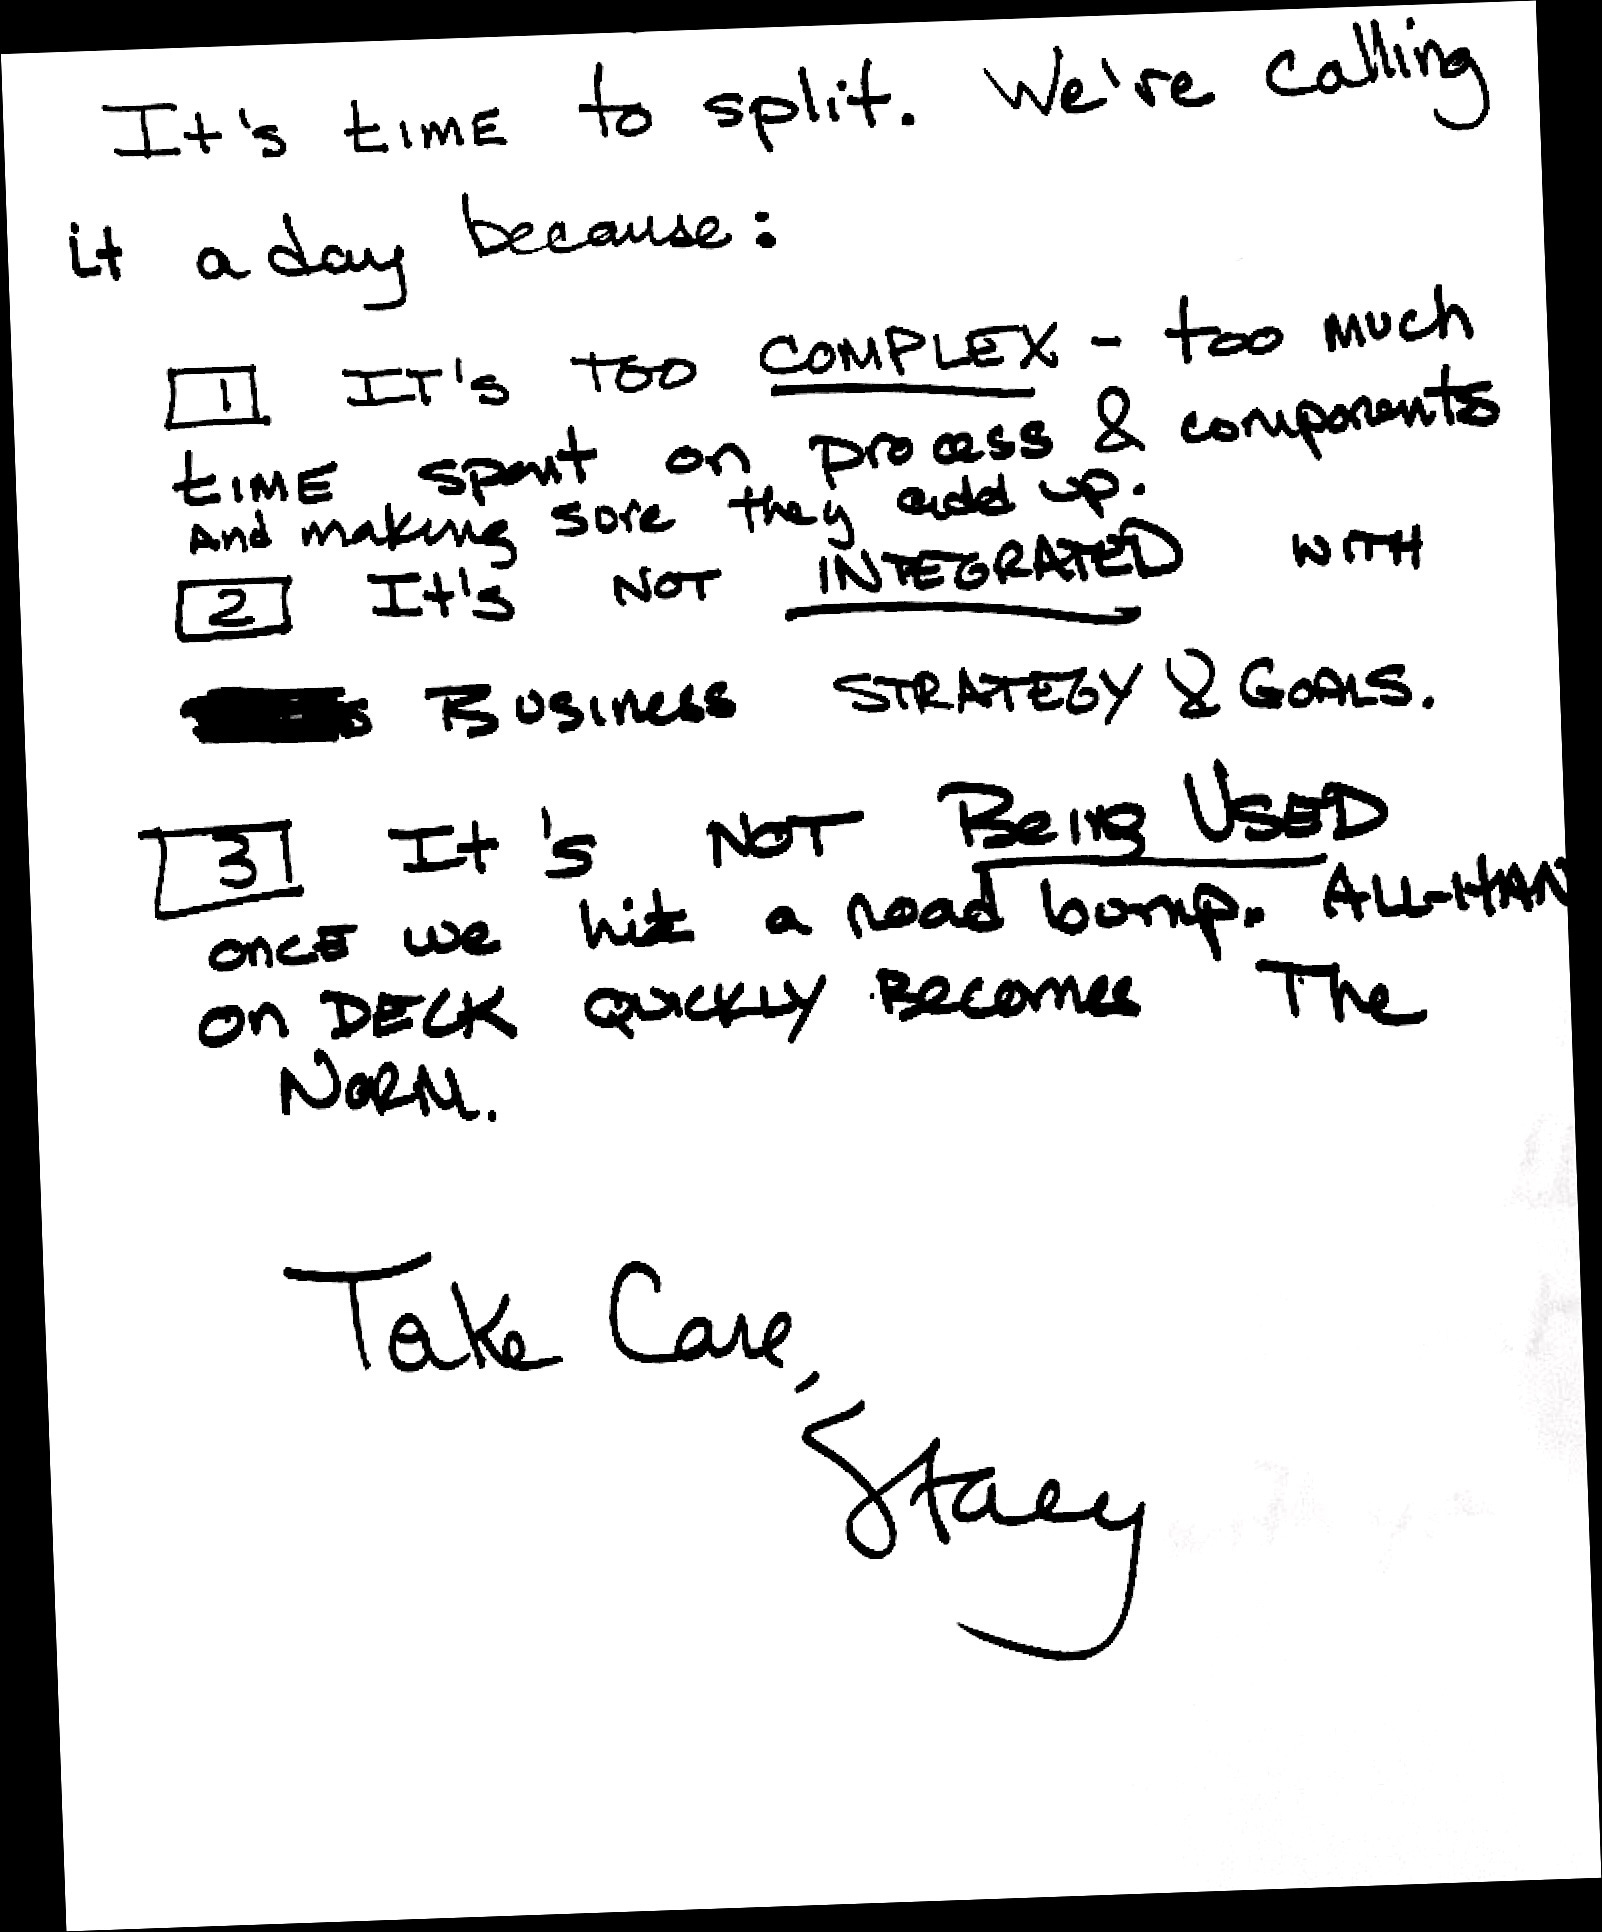 It's tIME to split. We're calling
it a day because:
1 IT's TOO COMPLEX - too much
tIME spent on process & components
And making sure they add up.
2 It's NOT INTEGRATED WITH
BUSINESS STRATEGY & GOALS.
3 It's NOT Being USED
oncE we hit a road bump. ALL-HAN
on DECK QUICKLY Becomes The
NORM.
Take Care,
Stacy